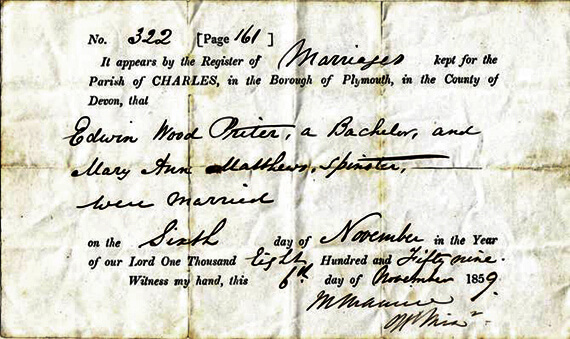 No. 322 [Page 161 ]
It appears by the Register of Marriages kept for the
Parish of CHARLES, in the Borough of Plymouth, in the County of
Devon, that
Edwin Wood Priter, a Bachelor, and
Mary Ann Matthews, Spinster,
were Married
on the Sixth day of November in the Year
of our Lord One Thousand Eight Hundred and Fifty nine.
Witness my hand, this 6th day of November 1859.